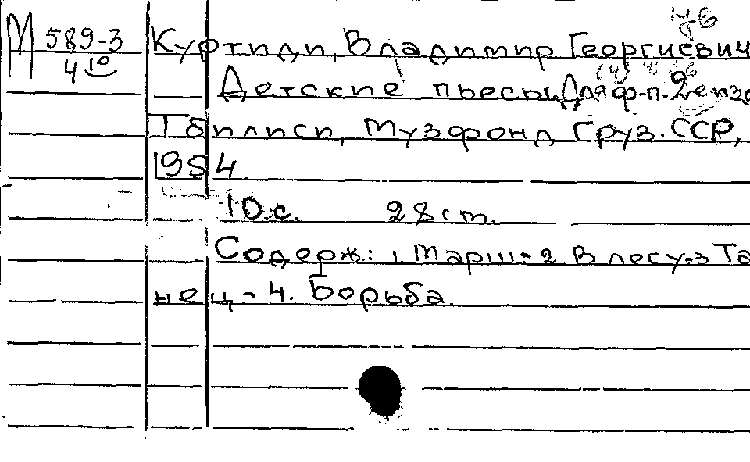 М 589-3
4 10
Куртиди, Владимир Георгиевич
Детские пьесы Для ф-п. 2 екз
Тбилиси, Музфонд Груз.ССР,
1954.
10с. 28 cm.
Содерж: 1 Марш-2 В лесу-3 Та
нец-4. Борьба.